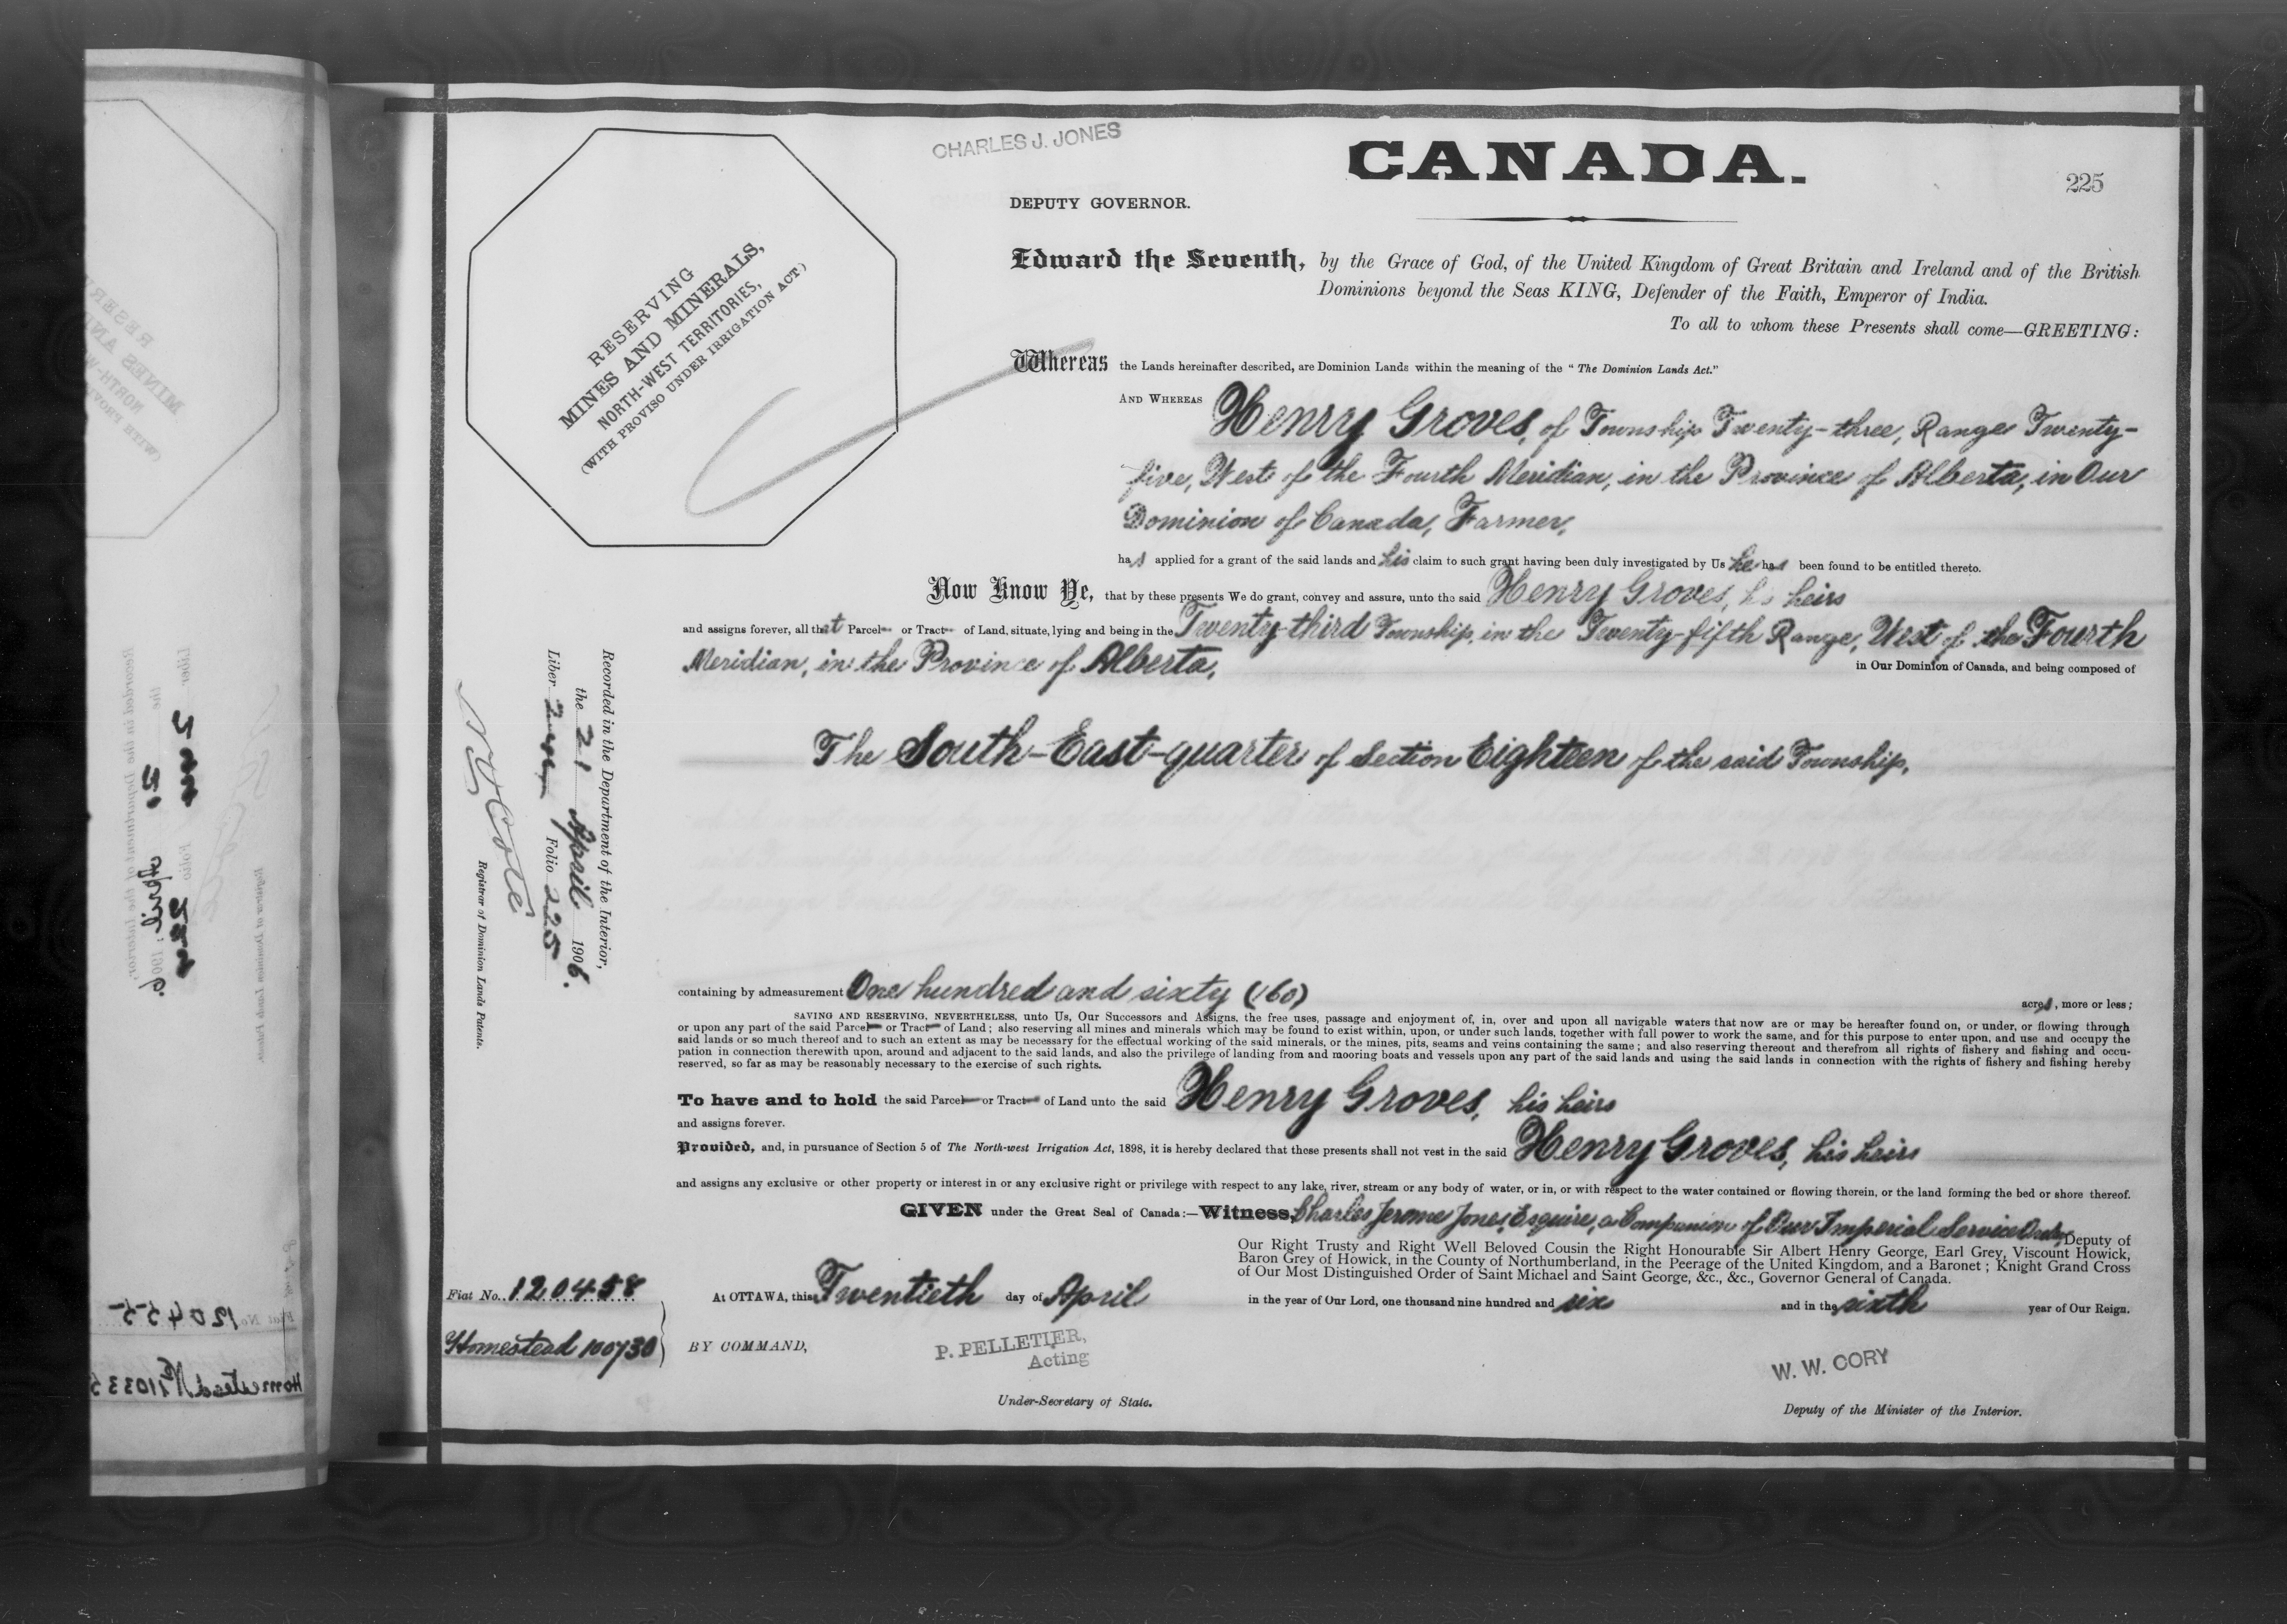 CHARLES J. JONES
CANADA.
225
DEPUTY GOVERNOR.
RESERVING
MINES AND MINERALS,
NORTH-WEST TERRITORIES,
(WITH PROVISO UNDER IRRIGATION ACT)
Edward the Seventh, by the Grace of God, of the United Kingdom of Great Britain and Ireland and of the British
Dominions beyond the Seas KING, Defender of the Faith, Emperor of India.
To all to whom these Presents shall come—GREETING:
Whereas the Lands hereinafter described, are Dominion Lands within the meaning of the "The Dominion Lands Act."
AND WHEREAS Henry Groves, of Township Twenty-three, Range Twenty-
five, West of the Fourth Meridian, in the Province of Alberta, in Our
Dominion of Canada, Farmer,
has applied for a grant of the said lands and his claim to such grant having been duly investigated by Us he has been found to be entitled thereto.
Now Know Ye, that by these presents We do grant, convey and assure, unto the said Henry Groves, his heirs
and assigns forever, all that Parcel or Tract of Land, situate, lying and being in the Twenty-third Township, in the Twenty-fifth Range, West of the Fourth
Meridian, in the Province of Alberta,
in Our Dominion of Canada, and being composed of
The South-East-quarter of Section Eighteen of the said Township,
Recorded in the Department of the Interior,
the 21 April 1906.
Liber Folio 225
N O Coté
Registrar of Dominion Lands Patents.
containing by admeasurement One hundred and sixty (160) acres, more or less;
SAVING AND RESERVING, NEVERTHELESS, unto Us, Our Successors and Assigns, the free uses, passage and enjoyment of, in, over and upon all navigable waters that now are or may be hereafter found on, or under, or flowing through
or upon any part of the said Parcel or Tract of Land; also reserving all mines and minerals which may be found to exist within, upon, or under such lands, together with full power to work the same, and for this purpose to enter upon, and use and occupy the
said lands or so much thereof and to such an extent as may be necessary for the effectual working of the said minerals, or the mines, pits, seams and veins containing the same; and also reserving thereout and therefrom all rights of fishery and fishing and occu-
pation in connection therewith upon, around and adjacent to the said lands, and also the privilege of landing from and mooring boats and vessels upon any part of the said lands and using the said lands in connection with the rights of fishery and fishing hereby
reserved, so far as may be reasonably necessary to the exercise of such rights.
To have and to hold the said Parcel or Tract of Land unto the said Henry Groves, his heirs
and assigns forever.
Provided, and, in pursuance of Section 5 of The North-west Irrigation Act, 1898, it is hereby declared that these presents shall not vest in the said Henry Groves, his heirs
and assigns any exclusive or other property or interest in or any exclusive right or privilege with respect to any lake, river, stream or any body of water, or in, or with respect to the water contained or flowing therein, or the land forming the bed or shore thereof.
GIVEN under the Great Seal of Canada:—Witness, Charles Jerome Jones, Esquire, a Companion of Our Imperial Service Order, Deputy of
Our Right Trusty and Right Well Beloved Cousin the Right Honourable Sir Albert Henry George, Earl Grey, Viscount Howick,
Baron Grey of Howick, in the County of Northumberland, in the Peerage of the United Kingdom, and a Baronet; Knight Grand Cross
of Our Most Distinguished Order of Saint Michael and Saint George, &c., &c., Governor General of Canada.
Fiat No. 120458
At OTTAWA, this Twentieth day of April in the year of Our Lord, one thousand nine hundred and six and in the sixth year of Our Reign.
Homestead 100730
BY COMMAND,
P. PELLETIER,
Acting
Under-Secretary of State.
W. W. CORY
Deputy of the Minister of the Interior.